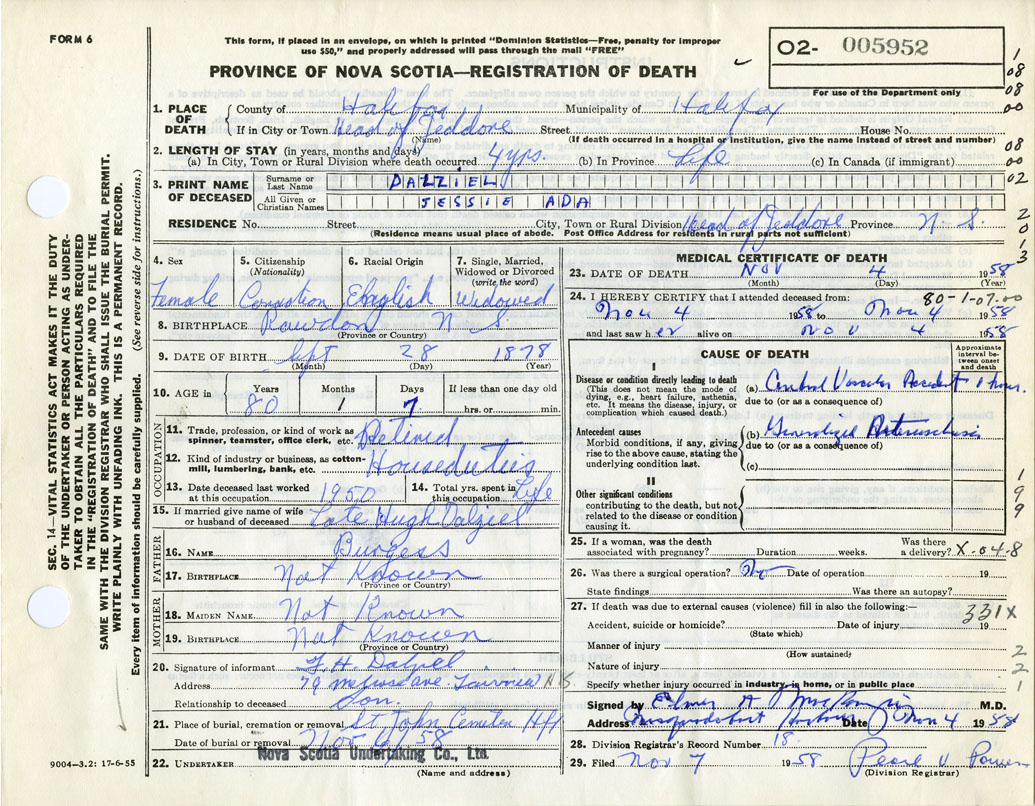 FORM 6
This form, if placed in an envelope, on which is printed "Dominion Statistics—Free, penalty for improper
use $50," and properly addressed will pass through the mail "FREE"
PROVINCE OF NOVA SCOTIA—REGISTRATION OF DEATH
02- 005952
For use of the Department only
1
08
08
00
08
02
2
0
1
3
1. PLACE OF DEATH County of Halifax Municipality of Halifax
If in City or Town Head of Jeddore Street House No.
(Name) (If death occurred in a hospital or institution, give the name instead of street and number)
2. LENGTH OF STAY (in years, months and days)
(a) In City, Town or Rural Division where death occurred 4 yrs. (b) In Province Life (c) In Canada (if immigrant)
3. PRINT NAME OF DECEASED Surname or Last Name DALZIEL
All Given or Christian Names JESSIE ADA
RESIDENCE No. Street City, Town or Rural Division Head of Jeddore Province N. S.
(Residence means usual place of abode. Post Office Address for residents in rural parts not sufficient)
4. Sex Female
5. Citizenship (Nationality) Canadian
6. Racial Origin English
7. Single, Married, Widowed or Divorced (write the word) Widowed
8. BIRTHPLACE Rawdon N S.
(Province or Country)
9. DATE OF BIRTH Sept 28 1878
(Month) (Day) (Year)
10. AGE in Years 80 Months 1 Days 7 If less than one day old hrs. or min.
OCCUPATION
11. Trade, profession, or kind of work as spinner, teamster, office clerk, etc. Retired
12. Kind of industry or business, as cotton-mill, lumbering, bank, etc. Houseduties
13. Date deceased last worked at this occupation 1950
14. Total yrs. spent in this occupation Life
15. If married give name of wife or husband of deceased Late Hugh Dalziel
FATHER
16. NAME Burgess
17. BIRTHPLACE Not Known
(Province or Country)
MOTHER
18. MAIDEN NAME Not Known
19. BIRTHPLACE Not Known
(Province or Country)
20. Signature of informant H. Dalziel
Address 79 ave. Fairview N S
Relationship to deceased Son.
21. Place of burial, cremation or removal St John Cemetery Hfx
Date of burial or removal 58
22. UNDERTAKER Nova Scotia Undertaking Co., Ltd.
(Name and address)
9004—3.2: 17-6-55
MEDICAL CERTIFICATE OF DEATH
23. DATE OF DEATH NOV 4 1958
(Month) (Day) (Year)
24. I HEREBY CERTIFY that I attended deceased from: 80-1-07.00
Nov 4 1958 to Nov 4 1958
and last saw her alive on Nov 4 1958
CAUSE OF DEATH
Approximate interval between onset and death
I
Disease or condition directly leading to death
(This does not mean the mode of dying, e.g., heart failure, asthenia, etc. It means the disease, injury, or complication which caused death.)
(a) Cerebral Vascular Accident 1 hour.
due to (or as a consequence of)
Antecedent causes
Morbid conditions, if any, giving rise to the above cause, stating the underlying condition last.
(b) Generalized Arteriosclerosis
due to (or as a consequence of)
(c)
II
Other significant conditions
contributing to the death, but not related to the disease or condition causing it.
1
9
9
25. If a woman, was the death associated with pregnancy? Duration weeks. Was there a delivery? X-04-8
26. Was there a surgical operation? No Date of operation 19
State findings Was there an autopsy?
27. If death was due to external causes (violence) fill in also the following:— 331X
Accident, suicide or homicide? Date of injury 19
(State which)
Manner of injury
(How sustained)
Nature of injury
Specify whether injury occurred in industry, in home, or in public place
2
2
1
Signed by Elmer A M.D.
Address Musquodoboit Harbour Date Nov 4 1958
28. Division Registrar's Record Number 18
29. Filed Nov 7 1958 Pearl V Powers
(Division Registrar)
SEC. 14—VITAL STATISTICS ACT MAKES IT THE DUTY
OF THE UNDERTAKER OR PERSON ACTING AS UNDER-
TAKER TO OBTAIN ALL THE PARTICULARS REQUIRED
IN THE "REGISTRATION OF DEATH" AND TO FILE THE
SAME WITH THE DIVISION REGISTRAR WHO SHALL ISSUE THE BURIAL PERMIT.
WRITE PLAINLY WITH UNFADING INK. THIS IS A PERMANENT RECORD.
Every item of information should be carefully supplied. (See reverse side for instructions.)